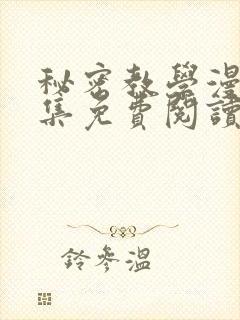 秘密教學漫
集免費閱讀
鈴參溫